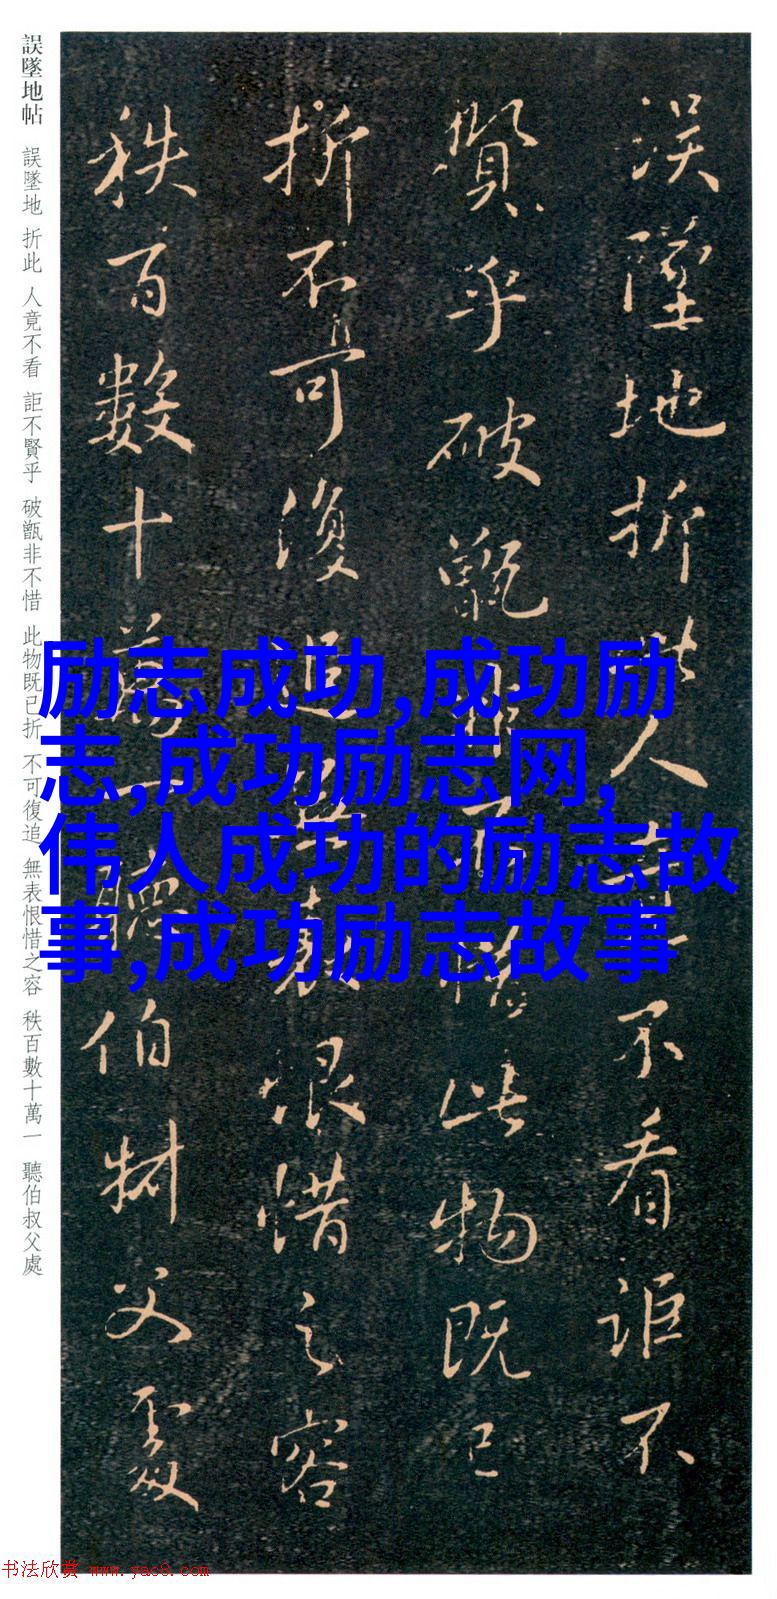 誤墜地帖 誤墜地 折此 人竟不看 詎不賢乎 破甑非不惜 此物既已折 不可復追 無表恨惜之容 秩百數十萬一 聽伯叔父處
误墜地折此人竟不看詎不
賢乎破甑非不惜此物既已
折不可復追無表恨惜之容
秩百數十萬一聽伯叔父處
励志成功,成功励
志,成功励志网,
伟人成功的励志故
事,成功励志故事
书法欣赏 www.yac8.com